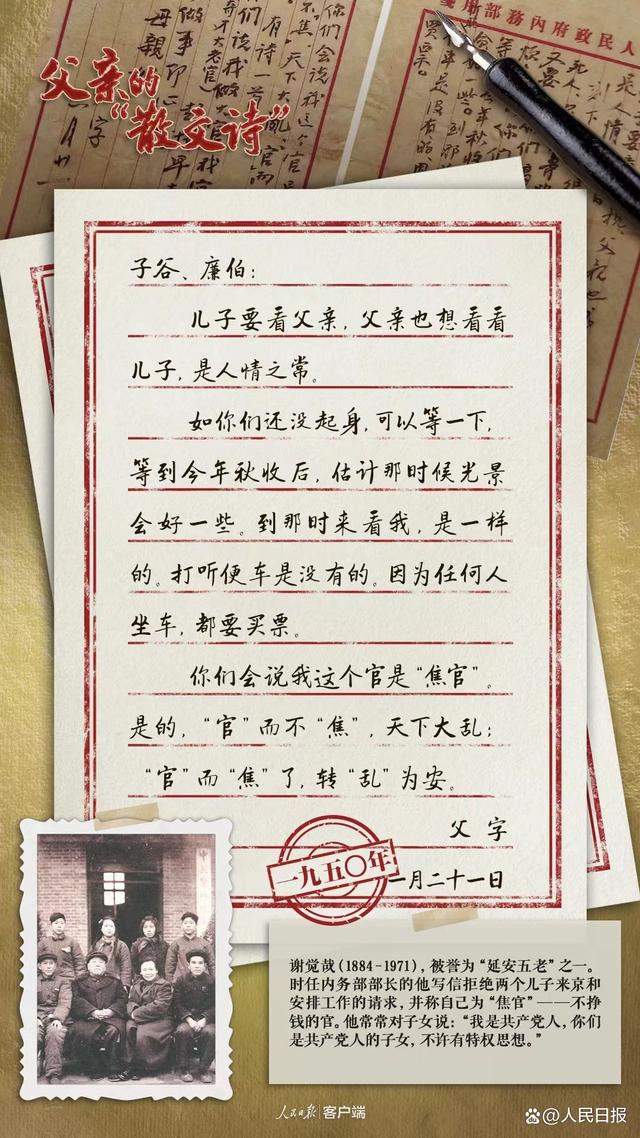 人民政府內務部用
父亲的
“散文诗”
子谷、廉伯：
儿子要看父亲，父亲也想看看
儿子，是人情之常。
如你们还没起身，可以等一下，
等到今年秋收后，估计那时候光景
会好一些。到那时来看我，是一样
的。打听便车是没有的。因为任何人
坐车，都要买票。
你们会说我这个官是“焦官”。
是的，“官”而不“焦”，天下大乱；
“官”而“焦”了，转“乱”为安。
父字
一九五〇年
一月二十一日
谢觉哉(1884-1971)，被誉为“延安五老”之一。
时任内务部部长的他写信拒绝两个儿子来京和
安排工作的请求，并称自己为“焦官”——不挣
钱的官。他常常对子女说：“我是共产党人，你们
是共产党人的子女，不许有特权思想。”
人民日报 客户端
人民日报